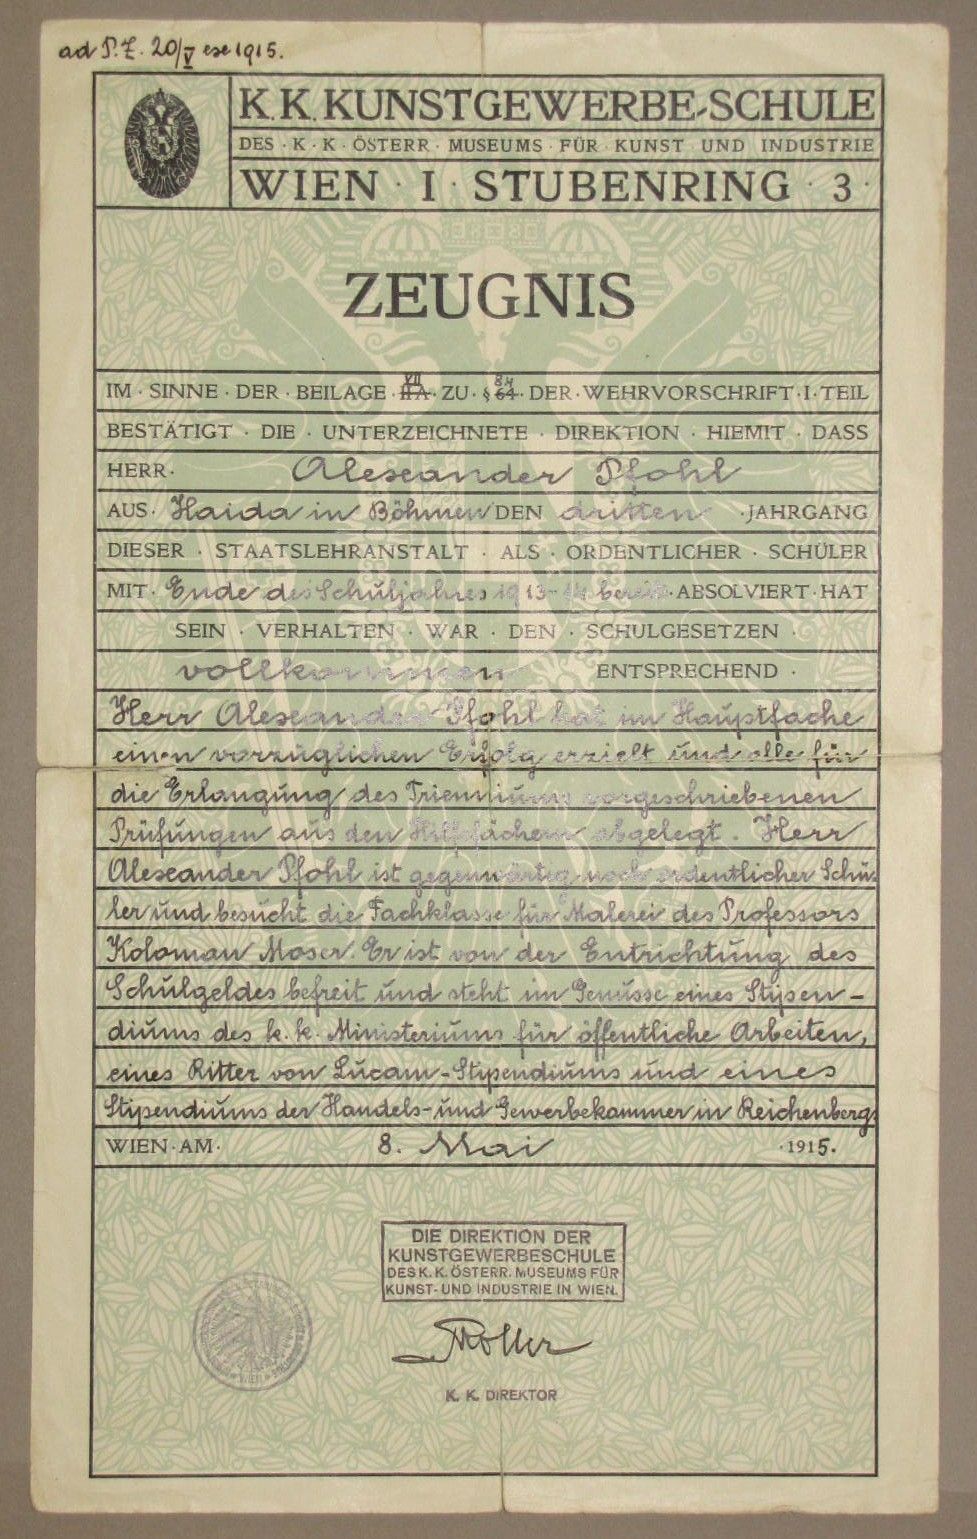 ad P.Z. 20/V 1915.
K.K. KUNSTGEWERBE-SCHULE
DES · K · K · ÖSTERR · MUSEUMS · FÜR · KUNST · UND · INDUSTRIE
WIEN · I · STUBENRING · 3 ·
ZEUGNIS
IM · SINNE · DER · BEILAGE · VII II A · ZU · § 84 64 · DER · WEHRVORSCHRIFT · I · TEIL
BESTÄTIGT · DIE · UNTERZEICHNETE · DIREKTION · HIEMIT · DASS
HERR · Alexander Pfohl
AUS · Haida in Böhmen DEN dritten · JAHRGANG
DIESER · STAATSLEHRANSTALT · ALS · ORDENTLICHER · SCHÜLER
MIT · Ende des Schuljahres 1913-14 bereits · ABSOLVIERT · HAT
SEIN · VERHALTEN · WAR · DEN · SCHULGESETZEN ·
vollkommen ENTSPRECHEND ·
Herr Alexander Pfohl hat im Hauptfache
einen vorzüglichen Erfolg erzielt und alle für
die Erlangung des Trienniums vorgeschriebenen
Prüfungen aus den Hilfsfächern abgelegt. Herr
Alexander Pfohl ist gegenwärtig noch ordentlicher Schü-
ler und besucht die Fachklasse für Malerei des Professors
Koloman Moser. Er ist von der Entrichtung des
Schulgeldes befreit und steht im Genusse eines Stipen-
diums des k. k. Ministeriums für öffentliche Arbeiten,
eines Ritter von Lucam-Stipendiums und eines
Stipendiums der Handels- und Gewerbekammer in Reichenberg.
WIEN · AM · 8. Mai · 1915.
DIE DIREKTION DER
KUNSTGEWERBESCHULE
DES K. K. ÖSTERR. MUSEUMS FÜR
KUNST- UND INDUSTRIE IN WIEN.
Roller
K. K. DIREKTOR
WIEN